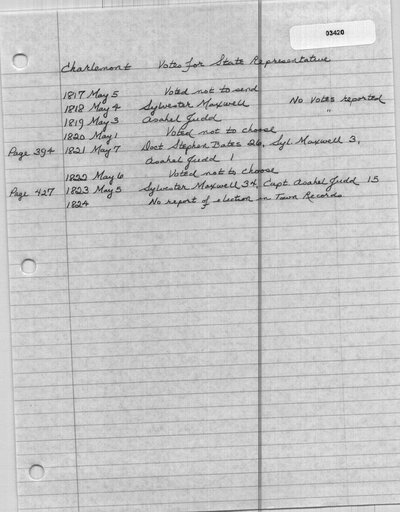 03420
Charlemont Votes for State Representative
1817 May 5 Voted not to send
1818 May 4 Sylvester Maxwell No Votes reported
1819 May 3 Asahel Judd "
1820 May 1 Voted not to choose
Page 394 1821 May 7 Doct Stephen Bates 26, Syl. Maxwell 3,
Asahel Judd 1
1822 May 6 Voted not to choose
Page 427 1823 May 5 Sylvester Maxwell 34, Capt. Asahel Judd 15
1824 No report of election in Town Records